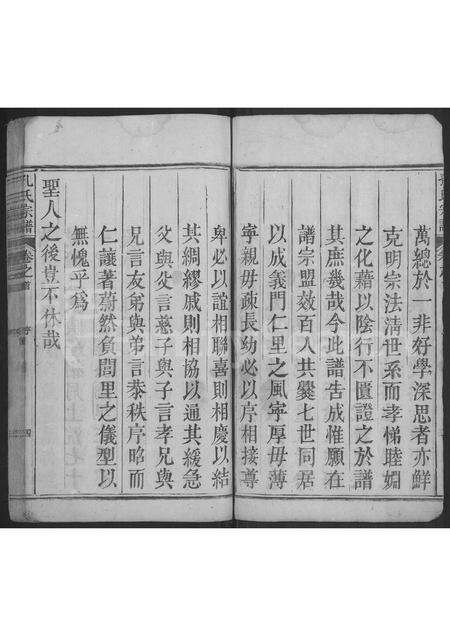 萬總於一非好學深思者亦鮮
克明宗法淸世系而孝悌睦婣
之化藉以陰行不匱證之於譜
其庶幾哉今此譜告成惟願在
譜宗盟效百人共爨七世同居
以成義門仁里之風寜厚毋薄
寜親毋疎長幼必以序相接尊
卑必以誼相聯喜則相慶以結
其綢繆戚則相協以通其緩急
父與父言慈子與子言孝兄與
兄言友弟與弟言恭秩序昭而
仁讓著蔚然負閭里之儀型以
無愧乎爲
聖人之後豈不休哉
孔氏宗譜 卷之首